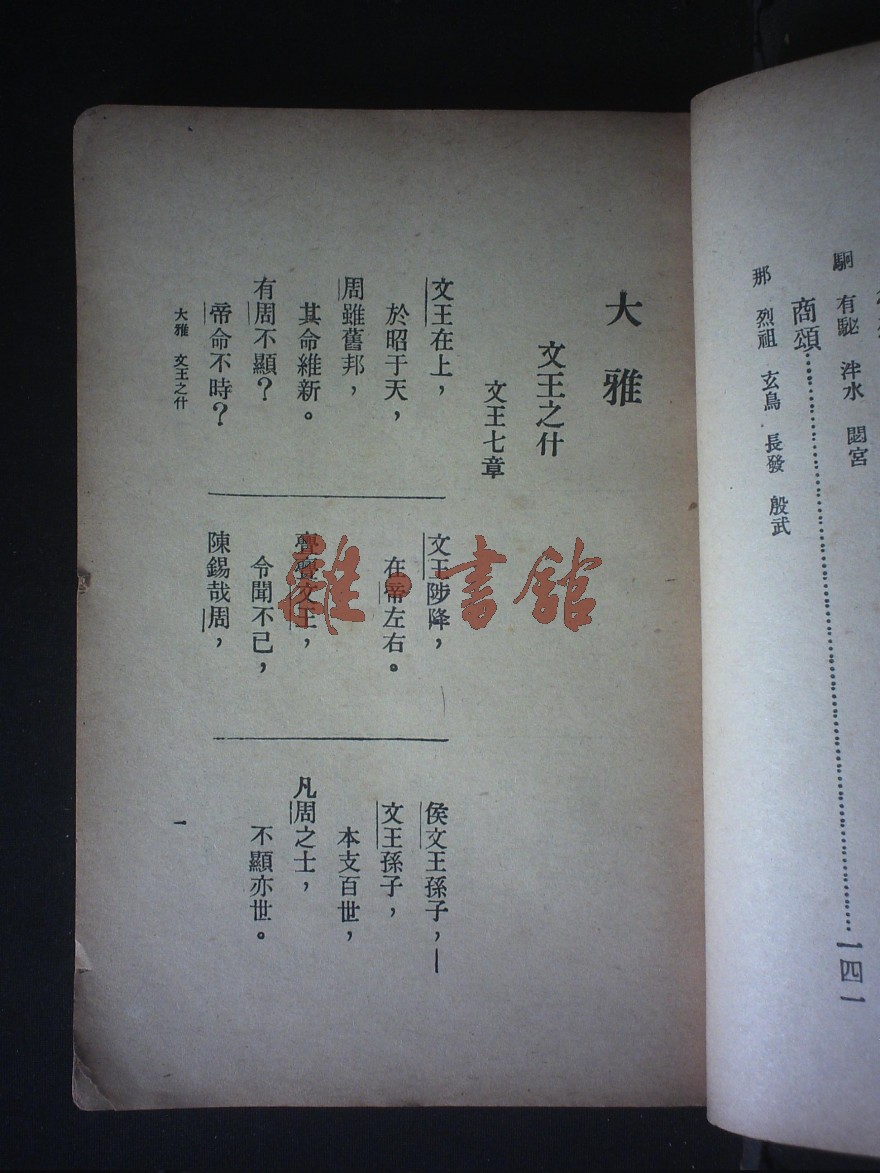 駉　有駜　泮水　閟宮
商頌……………………………一四一
那　烈祖　玄鳥　長發　殷武
大雅
文王之什
文王七章
文王在上，
於昭于天，
周雖舊邦，
其命維新。
有周不顯？
帝命不時？
文王陟降，
在帝左右。
亹亹文王，
令聞不已，
陳錫哉周，
侯文王孫子，—
文王孫子，
本支百世，
凡周之士，
不顯亦世。
大雅　文王之什
一
雜·書館